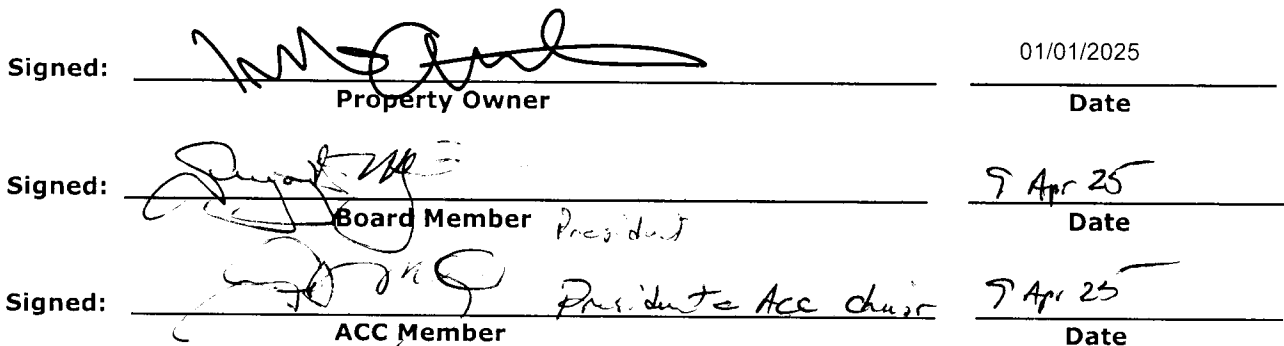 Signed: 01/01/2025
Property Owner Date
Signed: 9 Apr 25
Board Member President Date
Signed: President & Acc chair 9 Apr 25
ACC Member Date